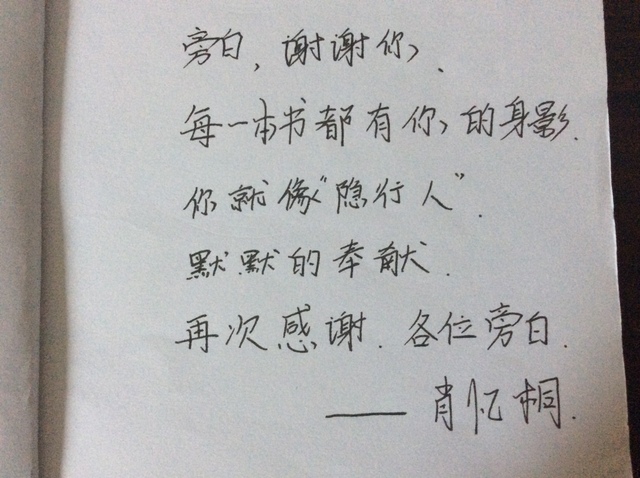 旁白，谢谢你、
每一本书都有你、的身影.
你就像“隐行人”.
默默的奉献.
再次感谢.各位旁白.
——肖忆桐.